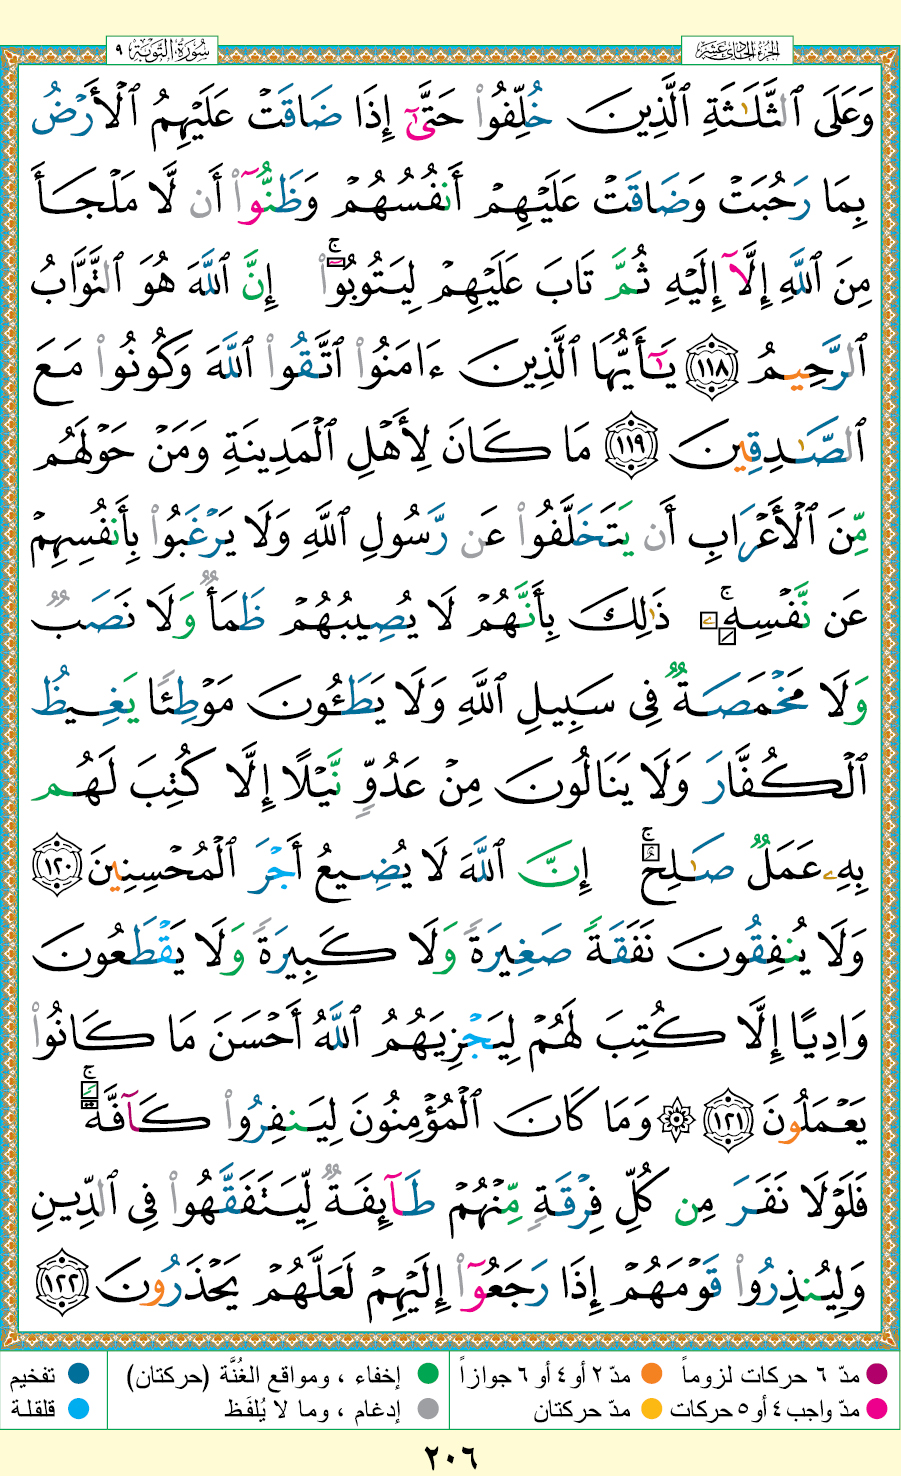 سُورَةُ التَّوْبَةِ ٩
الجزء الحادي عشر
وَعَلَى ٱلثَّلَٰثَةِ ٱلَّذِينَ خُلِّفُوا۟ حَتَّىٰٓ إِذَا ضَاقَتْ عَلَيْهِمُ ٱلْأَرْضُ
بِمَا رَحُبَتْ وَضَاقَتْ عَلَيْهِمْ أَنفُسُهُمْ وَظَنُّوٓا۟ أَن لَّا مَلْجَأَ
مِنَ ٱللَّهِ إِلَّآ إِلَيْهِ ثُمَّ تَابَ عَلَيْهِمْ لِيَتُوبُوٓا۟ ۚ إِنَّ ٱللَّهَ هُوَ ٱلتَّوَّابُ
ٱلرَّحِيمُ ١١٨ يَٰٓأَيُّهَا ٱلَّذِينَ ءَامَنُوا۟ ٱتَّقُوا۟ ٱللَّهَ وَكُونُوا۟ مَعَ
ٱلصَّٰدِقِينَ ١١٩ مَا كَانَ لِأَهْلِ ٱلْمَدِينَةِ وَمَنْ حَوْلَهُم
مِّنَ ٱلْأَعْرَابِ أَن يَتَخَلَّفُوا۟ عَن رَّسُولِ ٱللَّهِ وَلَا يَرْغَبُوا۟ بِأَنفُسِهِمْ
عَن نَّفْسِهِۦ ۚ ذَٰلِكَ بِأَنَّهُمْ لَا يُصِيبُهُمْ ظَمَأٌ وَلَا نَصَبٌ
وَلَا مَخْمَصَةٌ فِى سَبِيلِ ٱللَّهِ وَلَا يَطَـُٔونَ مَوْطِئًا يَغِيظُ
ٱلْكُفَّارَ وَلَا يَنَالُونَ مِنْ عَدُوٍّ نَّيْلًا إِلَّا كُتِبَ لَهُم
بِهِۦ عَمَلٌ صَٰلِحٌ ۚ إِنَّ ٱللَّهَ لَا يُضِيعُ أَجْرَ ٱلْمُحْسِنِينَ ١٢٠
وَلَا يُنفِقُونَ نَفَقَةً صَغِيرَةً وَلَا كَبِيرَةً وَلَا يَقْطَعُونَ
وَادِيًا إِلَّا كُتِبَ لَهُمْ لِيَجْزِيَهُمُ ٱللَّهُ أَحْسَنَ مَا كَانُوا۟
يَعْمَلُونَ ١٢١ ۞ وَمَا كَانَ ٱلْمُؤْمِنُونَ لِيَنفِرُوا۟ كَآفَّةً ۚ
فَلَوْلَا نَفَرَ مِن كُلِّ فِرْقَةٍ مِّنْهُمْ طَآئِفَةٌ لِّيَتَفَقَّهُوا۟ فِى ٱلدِّينِ
وَلِيُنذِرُوا۟ قَوْمَهُمْ إِذَا رَجَعُوٓا۟ إِلَيْهِمْ لَعَلَّهُمْ يَحْذَرُونَ ١٢٢
مدّ ٦ حركات لزوماً مدّ ٢ أو ٤ أو ٦ جوازاً إخفاء ، ومواقع الغُنَّة (حركتان) تفخيم
مدّ واجب ٤ أو ٥ حركات مدّ حركتان إدغام ، وما لا يُلفَظ قلقلة
٢٠٦